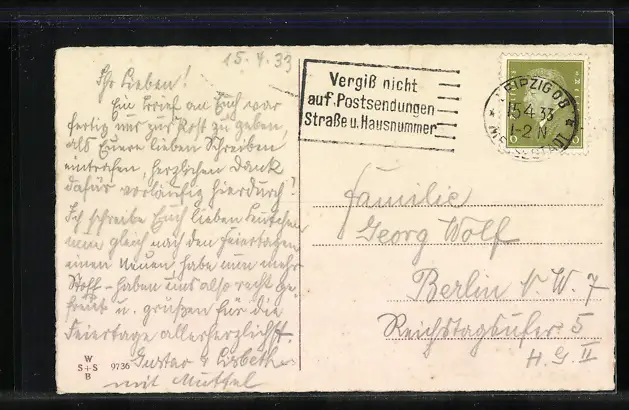 15.4.33
Ihr Lieben!
Ein Brief an Euch war
fertig um zur Post zu geben,
als Euere lieben Schreiben
eintrafen, herzlichen Dank
dafür vorläufig hierdurch!
Ich schreibe Euch lieben Leutchen
nun gleich nach den Feiertagen
einen neuen, habe nun mehr
Stoff – haben uns also recht ge-
freut u. grüßen für die
Feiertage allerherzlichst.
Gustav & Lisbeth
mit Muttel
W
S+S
B
9736
Vergiß nicht
auf Postsendungen
Straße u. Hausnummer
LEIPZIG O8
15.4.33
1-2 N
MESSESTADT
6
Familie
Georg Wolf
Berlin N.W. 7
Reichstagsufer 5
H. G. II